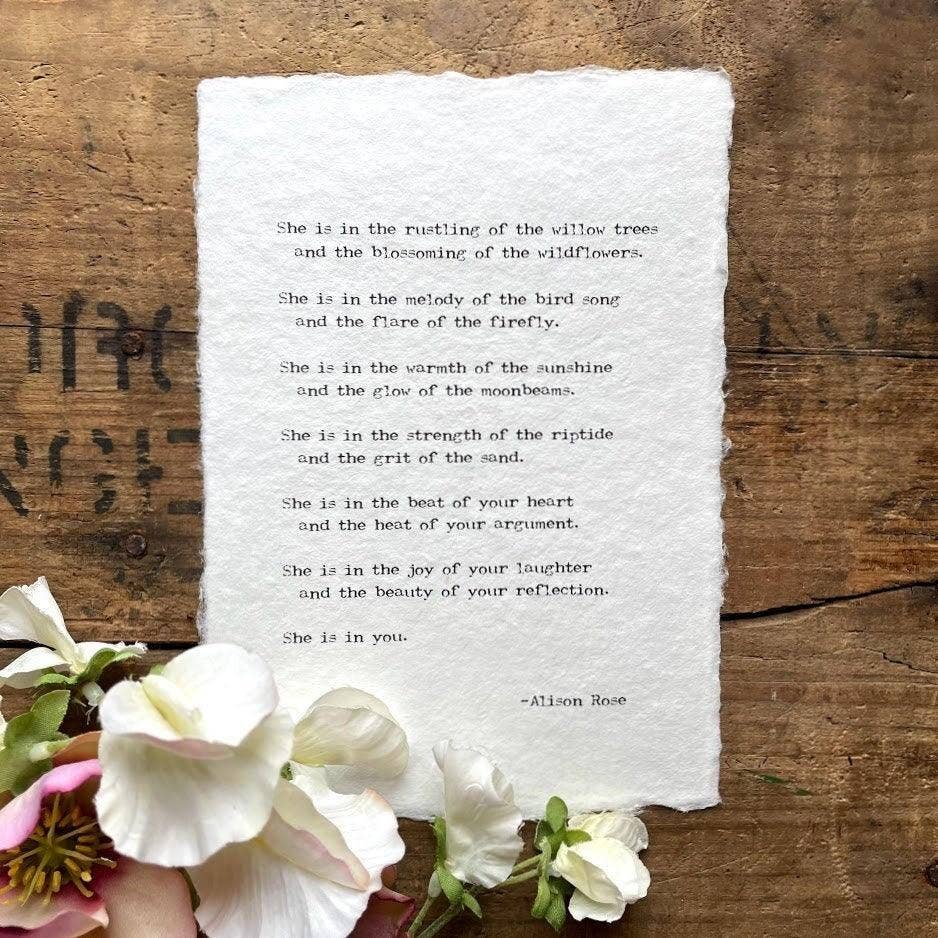 She is in the rustling of the willow trees
and the blossoming of the wildflowers.
She is in the melody of the bird song
and the flare of the firefly.
She is in the warmth of the sunshine
and the glow of the moonbeams.
She is in the strength of the riptide
and the grit of the sand.
She is in the beat of your heart
and the heat of your argument.
She is in the joy of your laughter
and the beauty of your reflection.
She is in you.
-Alison Rose